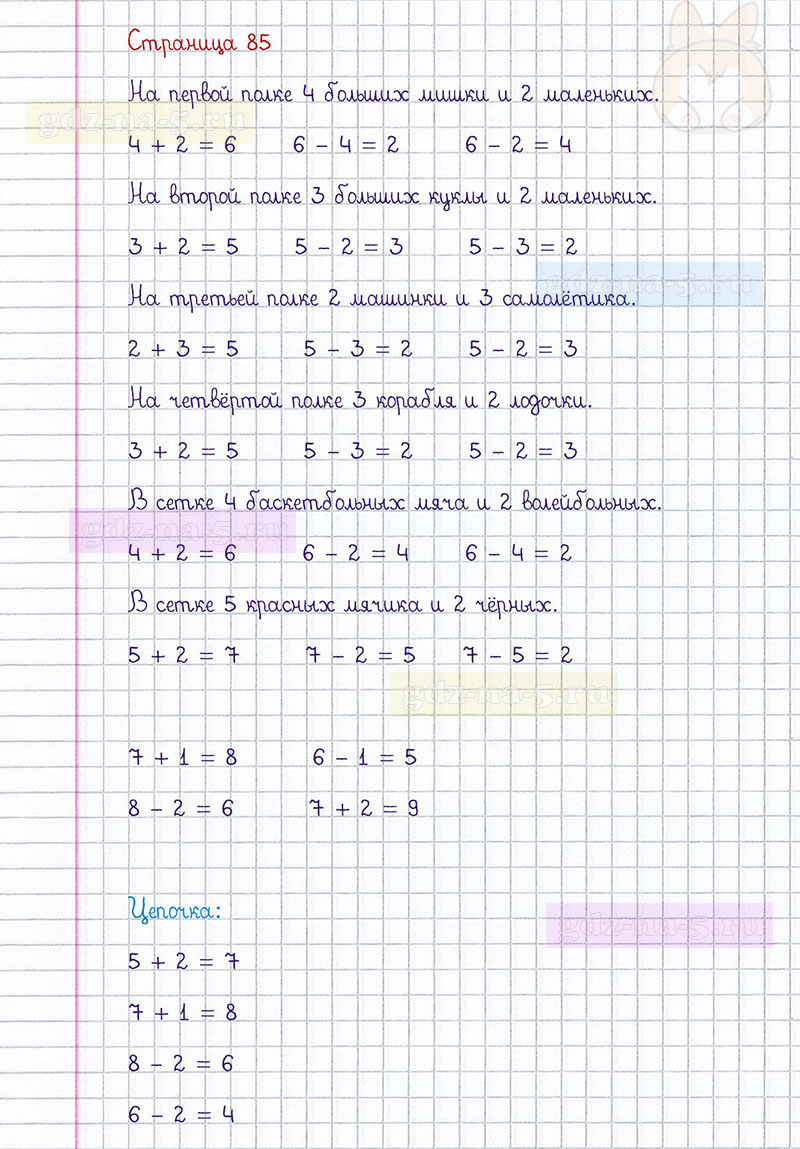 Страница 85
На первой полке 4 больших мишки и 2 маленьких.
gdz-na-5.ru
4 + 2 = 6 6 - 4 = 2 6 - 2 = 4
На второй полке 3 больших куклы и 2 маленьких.
3 + 2 = 5 5 - 2 = 3 5 - 3 = 2
gdz-na-5.ru
На третьей полке 2 машинки и 3 самолётика.
2 + 3 = 5 5 - 3 = 2 5 - 2 = 3
На четвёртой полке 3 корабля и 2 лодочки.
3 + 2 = 5 5 - 3 = 2 5 - 2 = 3
В сетке 4 баскетбольных мяча и 2 волейбольных.
gdz-na-5.ru
4 + 2 = 6 6 - 2 = 4 6 - 4 = 2
В сетке 5 красных мячика и 2 чёрных.
5 + 2 = 7 7 - 2 = 5 7 - 5 = 2
gdz-na-5.ru
7 + 1 = 8 6 - 1 = 5
8 - 2 = 6 7 + 2 = 9
Цепочка:
gdz-na-5.ru
5 + 2 = 7
7 + 1 = 8
8 - 2 = 6
6 - 2 = 4